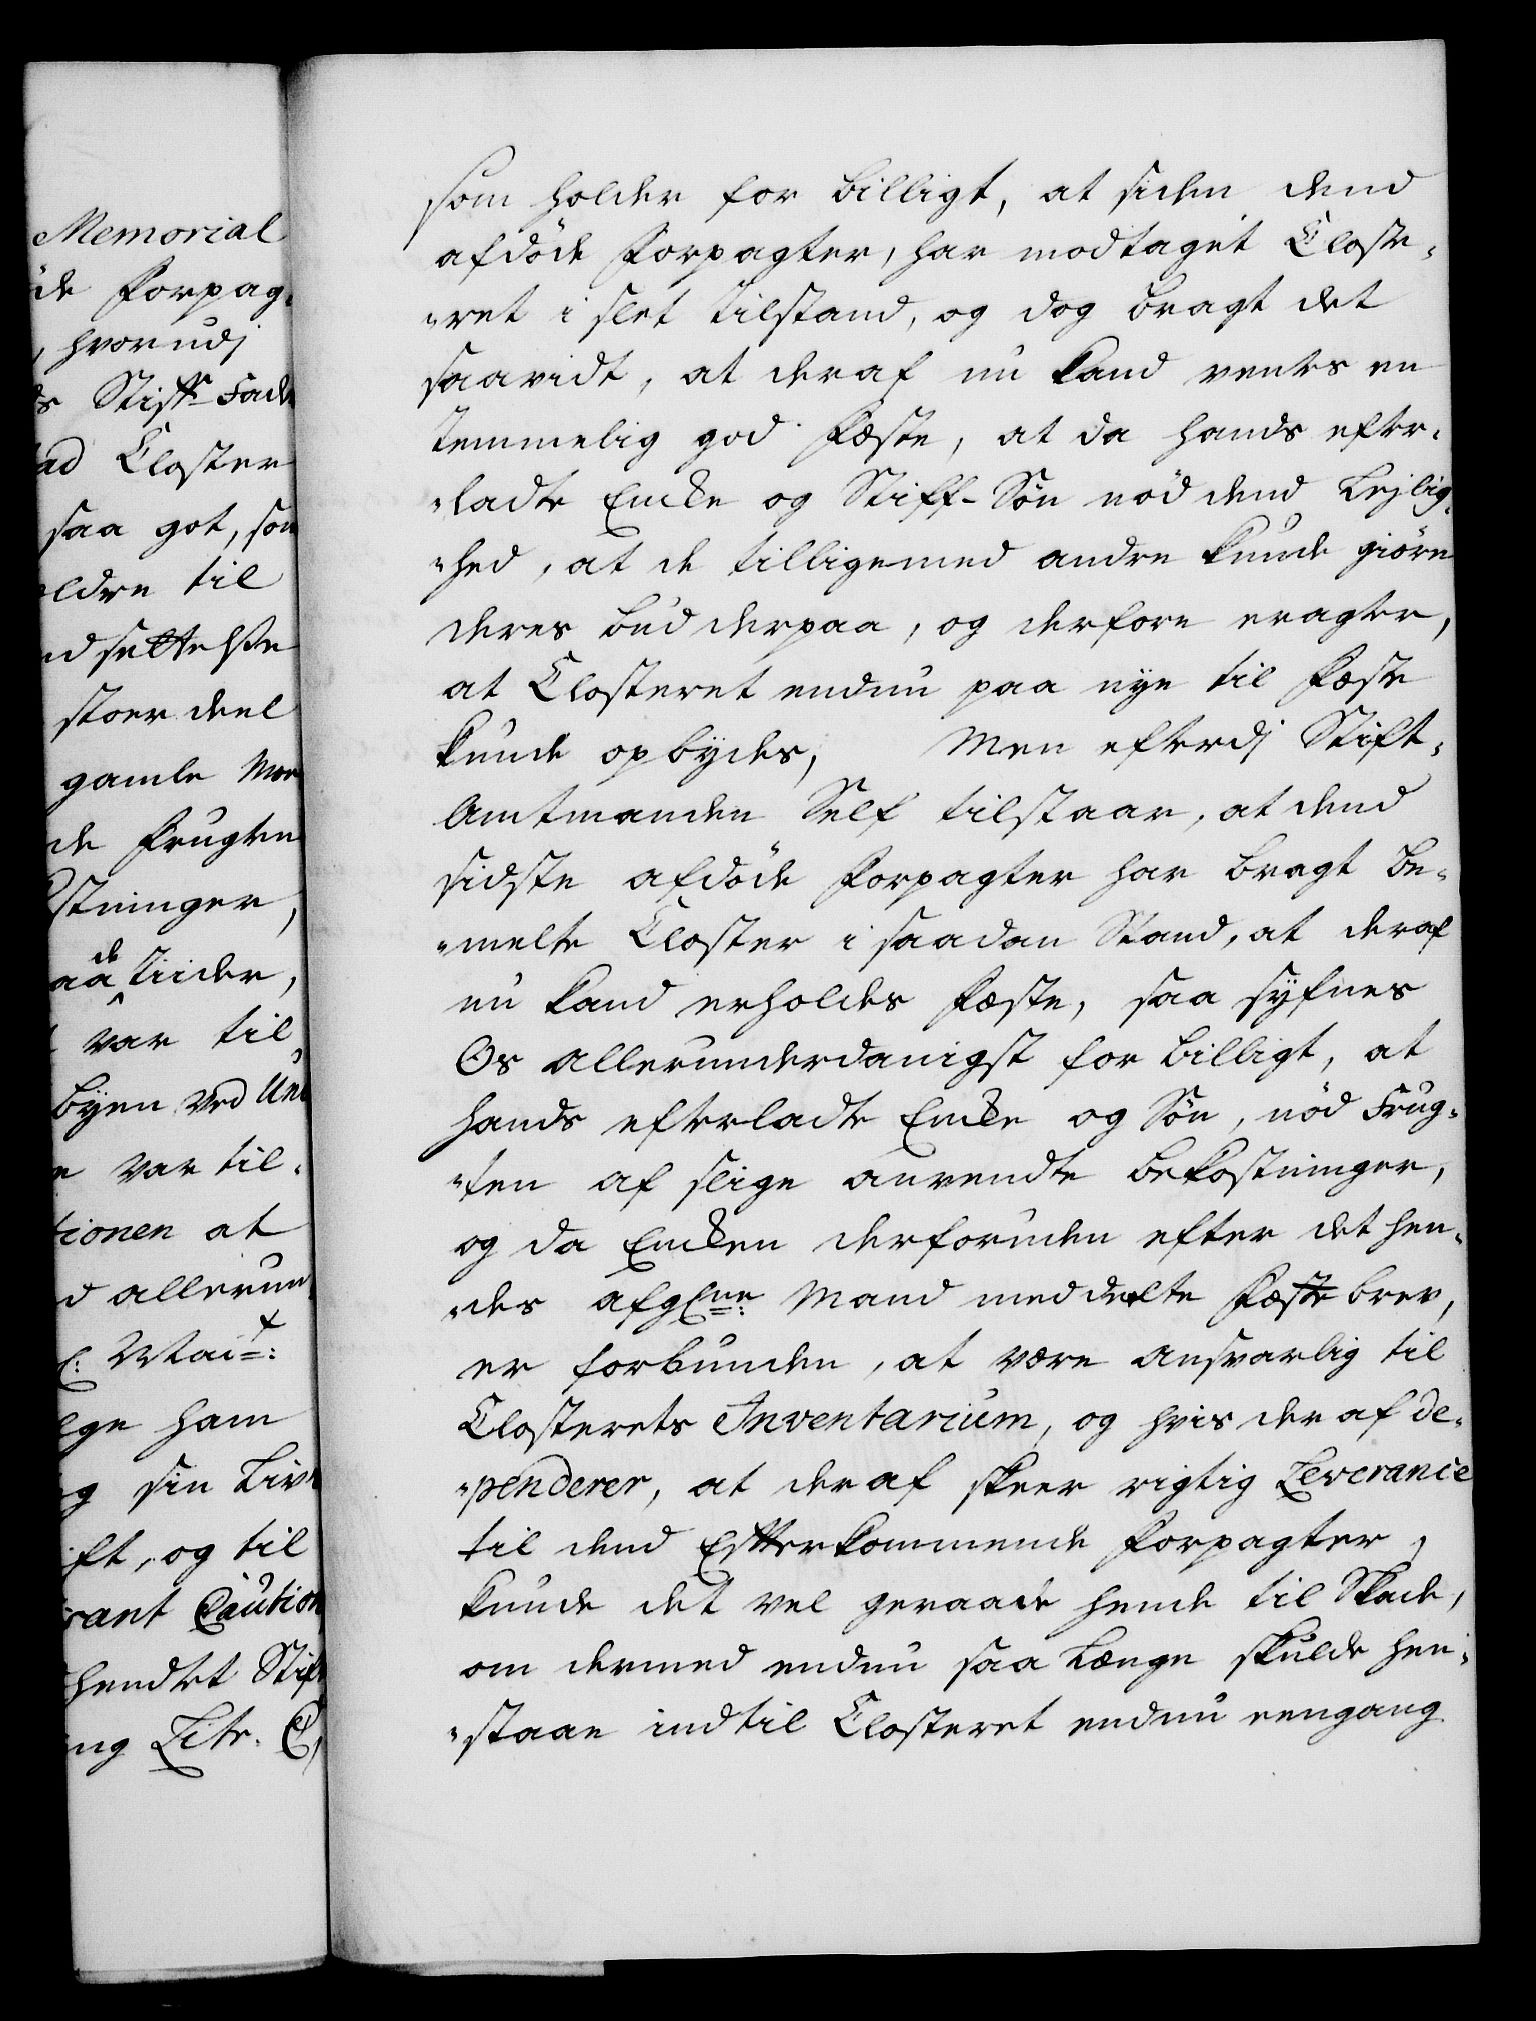 Memorial
de Forpag-
, hvorudj
s Stiff-Fad
ad Closter
saa got, som
ældre til
ndsettelse
stoer deel
gamle
de Frugten
stninger,
aade Tiider,
var til
byen ved Un
e var til-
tionen at
d allerun
Mait:
ge ham
g sin Liv
ift, og til
rant Caution
hendtet Stif
ng Litr. C,
som holder for billigt, at siden dend
afdöde Forpagter, har modtaget Closte-
"ret i slet tilstand, og dog bragt det
saavidt, at deraf nu kand ventes en
temmelig god Fæste, at da hands efter-
"ladte Encke og Stiff-Sön nöd dend Lejlig-
"hed, at de tilligemed andre kunde giöre
deres bud derpaa, og derfore eragter,
at Closteret endnu paa nye til Fæste
kunde opbydes, Men efterdj Stift-
Amtmanden Self tilstaar, at dend
sidste afdöde Forpagter har bragt be-
"melte Closter i saadan Stand, at deraf
nu kand erholdes Fæste, saa syfnes
Os allerunderdanigst for billigt, at
hands efterladte Encke og Sön, nöd Frug-
"ten af slige anvendte bekostninger,
og da Encken derforuden efter det hen-
"des afgl:ne: Mand meddelte Fæste brev,
er forbunden, at være ansvarlig til
Closterets Inventarium, og hvis der af de-
"penderer, at deraf skeer rigtig Leverance
til dend Efterkommende Forpagter,
kunde det vel geraade hende til Skade,
om dermed endnu saa længe skulde hen-
"staae indtil Closteret endnu eengang